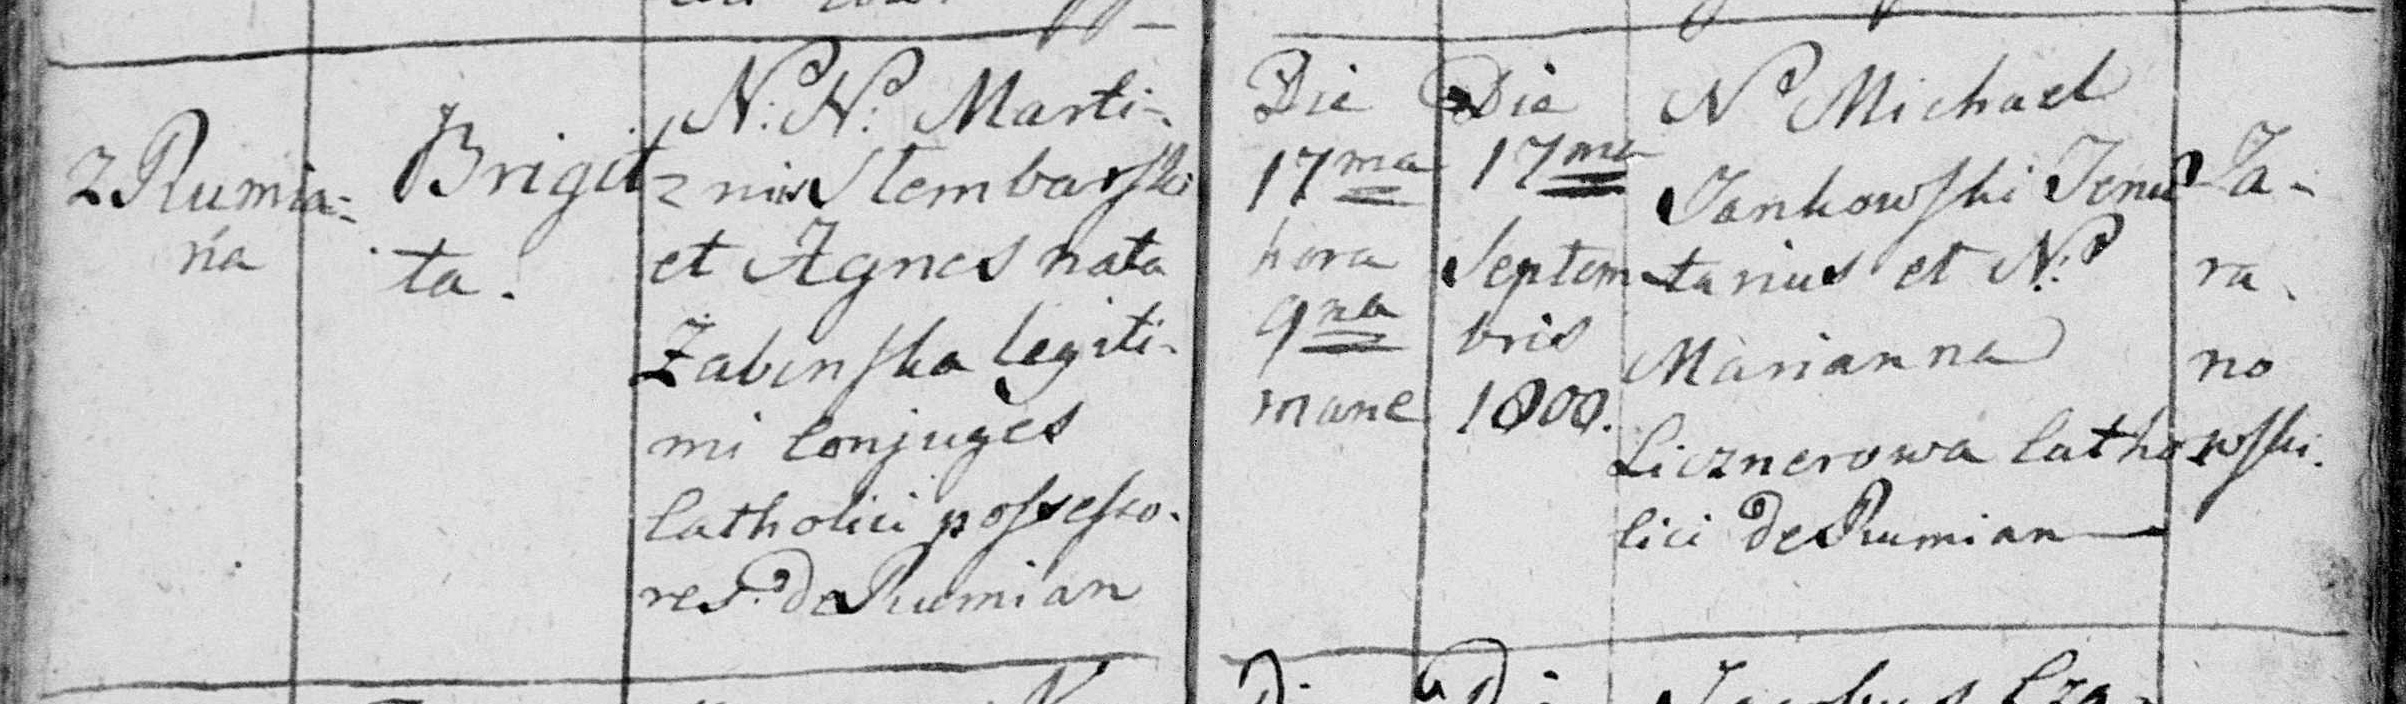 2 Rumia-
nia
Brigit
ta.
N: N: Marti-
nis Stembarski
et Agnes nata
Zabinska legiti-
mi Conjuges
Catholici possesso-
res de Rumian
Die
17ma
hora
9na
mane
Die
17ma
Septem
bris
1800.
N Michael
Jankowski Tenu
tarius et N:
Marianna
Licznerowa Catho
lici de Rumian
Ja-
ra
no
wski.